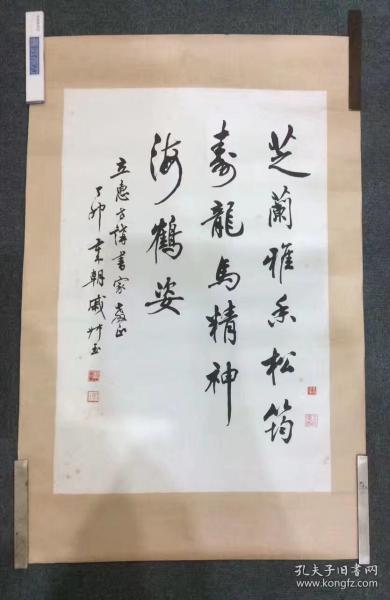 芝蘭雅香松筠
壽龍馬精神
海鶴姿
立惠方講書家教正
丁卯年朝威竹玉
孔夫子旧书网
www.kongfz.com